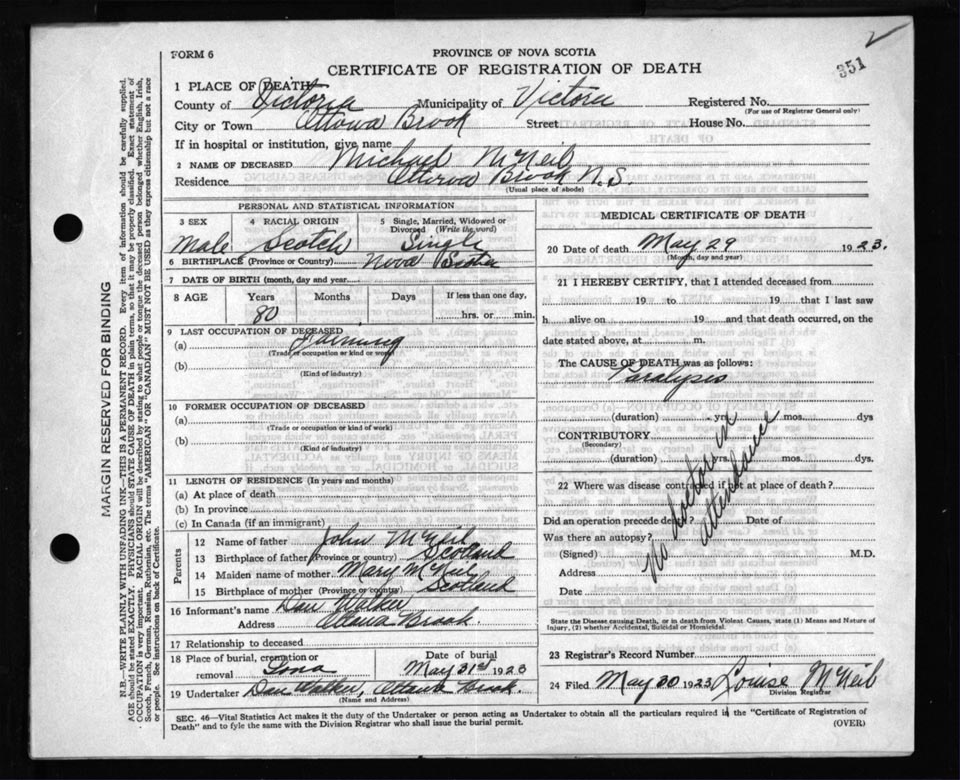 351
FORM 6
PROVINCE OF NOVA SCOTIA
CERTIFICATE OF REGISTRATION OF DEATH
1 PLACE OF DEATH
County of Victoria Municipality of Victoria Registered No.
(For use of Registrar General only)
City or Town Ottowa Brook Street House No.
If in hospital or institution, give name
2 NAME OF DECEASED Michael McNeil
Residence Ottowa Brook N.S.
(Usual place of abode)
PERSONAL AND STATISTICAL INFORMATION
3 SEX 4 RACIAL ORIGIN 5 Single, Married, Widowed or Divorced (Write the word)
Male Scotch Single
6 BIRTHPLACE (Province or Country) Nova Scotia
7 DATE OF BIRTH (month, day and year)
8 AGE Years Months Days If less than one day,
80 hrs. or min.
9 LAST OCCUPATION OF DECEASED
(a) Farming
(Trade or occupation or kind or work)
(b)
(Kind of industry)
10 FORMER OCCUPATION OF DECEASED
(a)
(Trade or occupation or kind of work)
(b)
(Kind of industry)
11 LENGTH OF RESIDENCE (In years and months)
(a) At place of death
(b) In province
(c) In Canada (if an immigrant)
Parents
12 Name of father John McNeil
13 Birthplace of father (Province or country) Scotland
14 Maiden name of mother Mary McNeil
15 Birthplace of mother (Province or country) Scotland
16 Informant's name Dan Walker
Address Ottawa Brook.
17 Relationship to deceased
18 Place of burial, cremation or removal Iona Date of burial May 31st 1923
19 Undertaker Dan Walker, Ottawa Brook.
(Name and Address)
MEDICAL CERTIFICATE OF DEATH
20 Date of death May 29 1923.
(Month, day and year)
21 I HEREBY CERTIFY, that I attended deceased from
19 to 19 that I last saw
h alive on 19 and that death occurred, on the
date stated above, at m.
The CAUSE OF DEATH was as follows:
Paralysis
(duration) yrs. mos. dys
CONTRIBUTORY
(Secondary)
(duration) yrs. mos. dys.
22 Where was disease contracted if not at place of death?
Did an operation precede death? Date of
Was there an autopsy?
(Signed) M.D.
Address
Date
No doctor in
attendance
State the Disease causing Death, or in death from Violent Causes, state (1) Means and Nature of
Injury, (2) whether Accidental, Suicidal or Homicidal.
23 Registrar's Record Number
24 Filed May 30 1923 Louise McNeil
Division Registrar
SEC. 46—Vital Statistics Act makes it the duty of the Undertaker or person acting as Undertaker to obtain all the particulars required in the "Certificate of Registration of
Death" and to fyle the same with the Division Registrar who shall issue the burial permit.
(OVER)
MARGIN RESERVED FOR BINDING
N.B.—WRITE PLAINLY WITH UNFADING INK—THIS IS A PERMANENT RECORD. Every item of information should be carefully supplied.
AGE should be stated EXACTLY. PHYSICIANS should STATE CAUSE OF DEATH in plain terms, so that it may be properly classified. Exact statement of
OCCUPATION is very important. RACIAL ORIGIN will be described by stating to what people or tongue the deceased person belonged whether English, Irish,
Scotch, French, German, Russian, Ruthenian, etc. The terms "AMERICAN" OR "CANADIAN" MUST NOT BE USED as they express citizenship but not a race
or people. See instructions on back of Certificate.